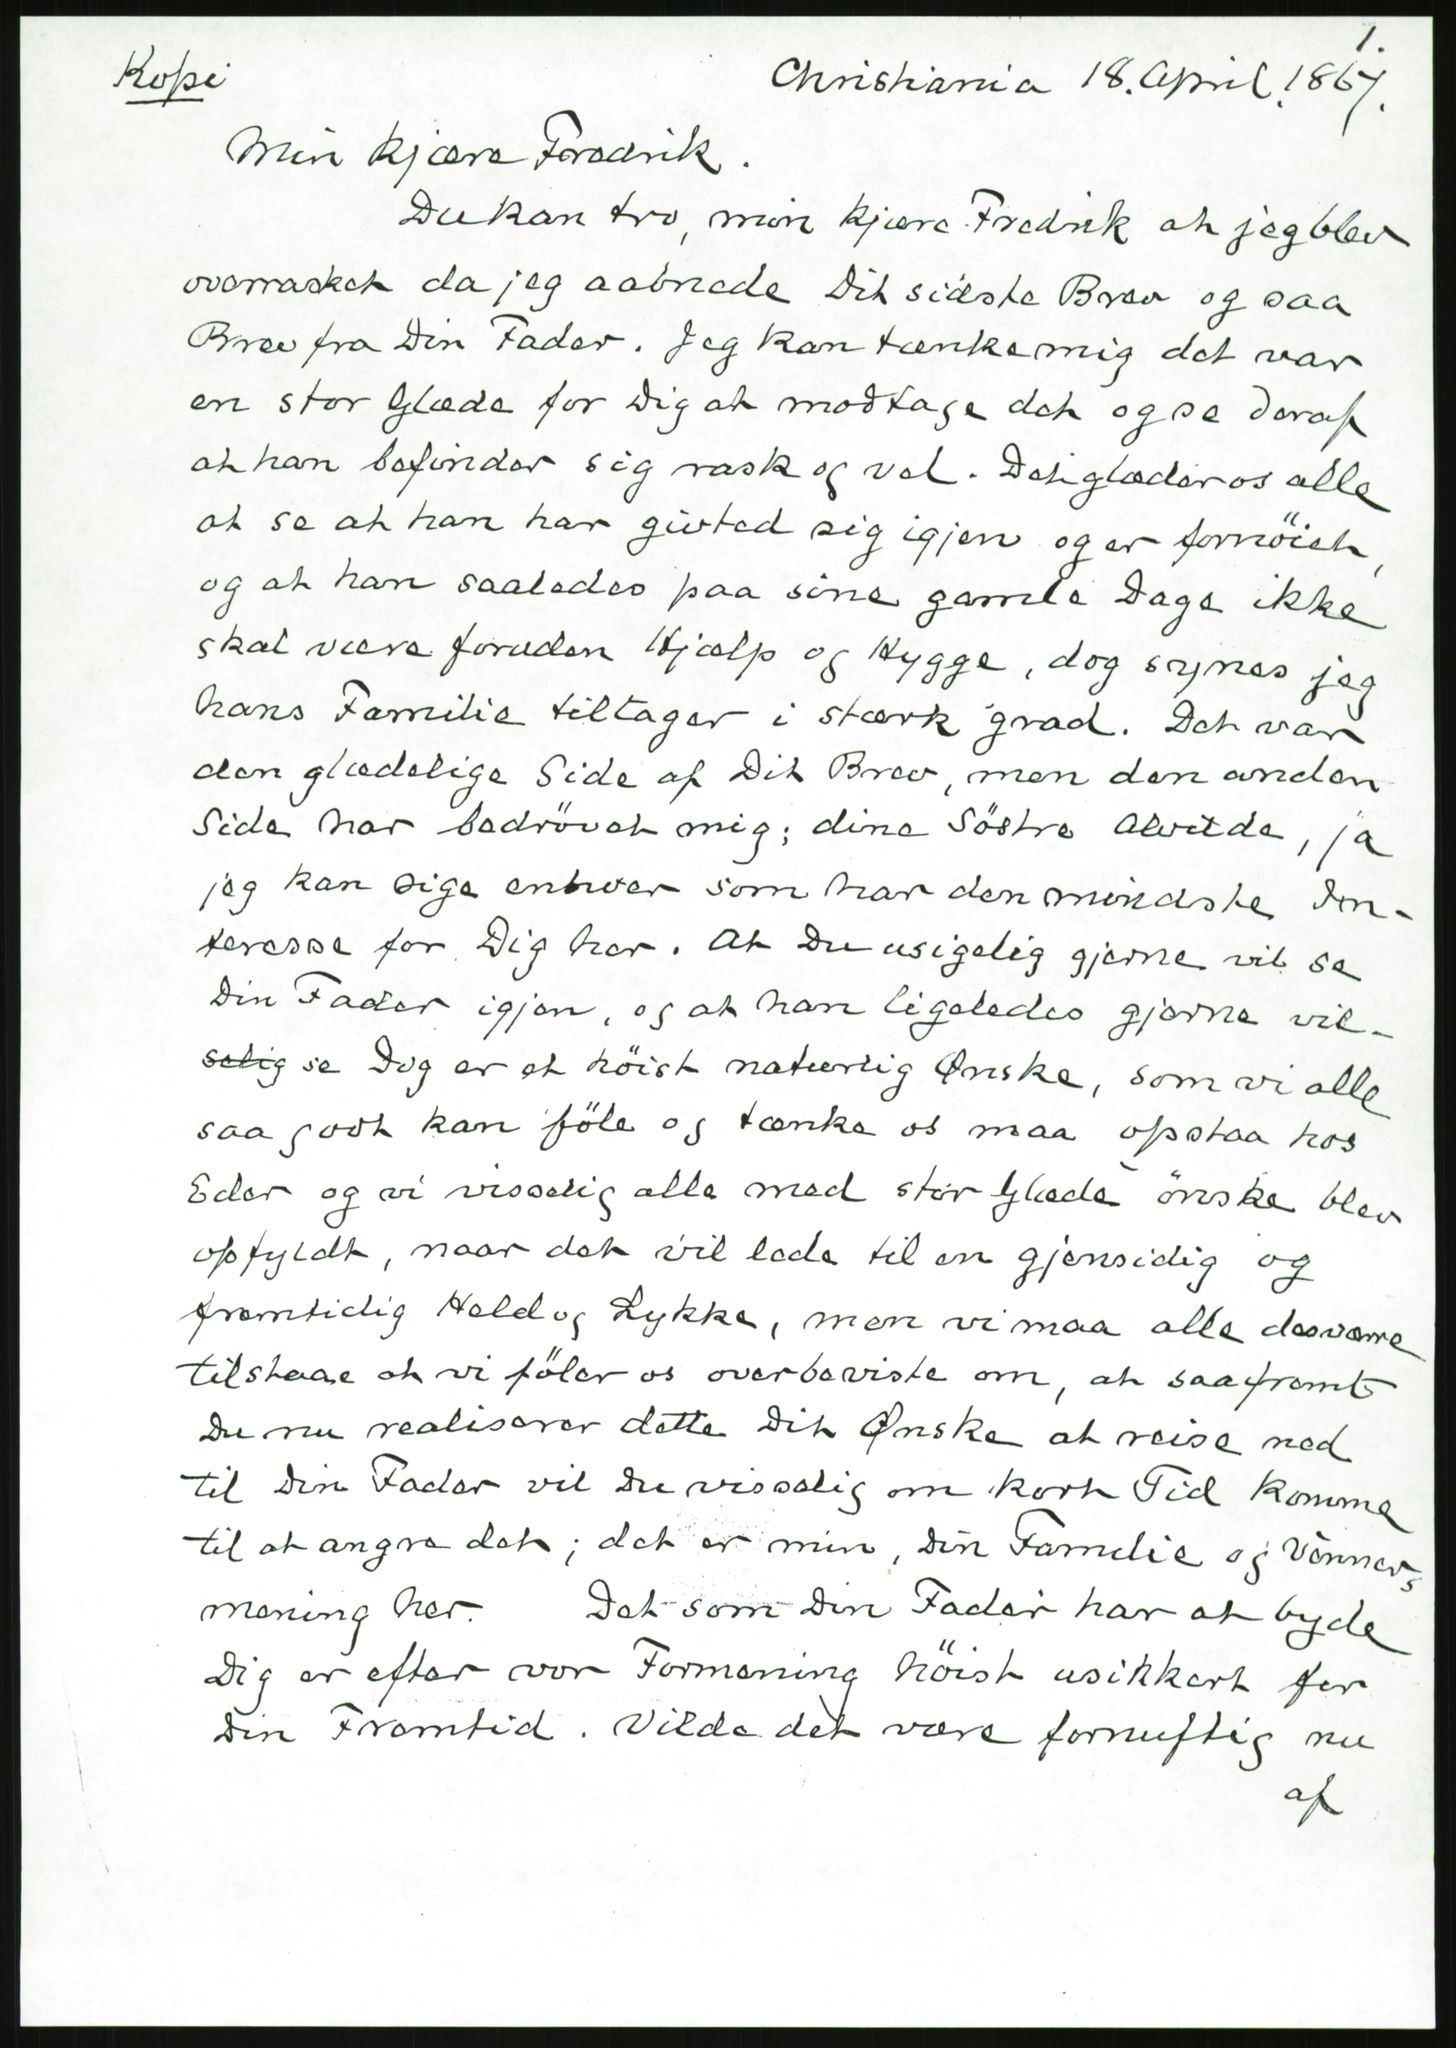 1.
Kopi Christiania 18. April. 1867.
Min kjære Fredrik.
Du kan tro, min kjære Fredrik at jeg blev
overrasket da jeg aabnede Dit sidste Brev og saa
Brev fra Din Fader. Jeg kan tænke mig det var
en stor Glæde for Dig at modtage det og se deraf
at han befinder sig rask og vel. Det glæder os alle
at se at han har givted sig igjen og er fornöiet,
og at han saaledes paa sine gamle Dage ikke
skal være foruden Hjælp og Hygge, dog synes jeg
hans Familie tiltager i stærk grad. Det var
den glædelige Side af Dit Brev, men den anden
Side har bedrövet mig; dine Söstre Alvilde, ja
jeg kan sige enhver som har den mindste In-
teresse for Dig her. At Du usigelig gjerne vil se
Din Fader igjen, og at han ligeledes gjerne vil-
selig se Dig er et höist naturlig Ønske, som vi alle
saa godt kan föle og tænke os maa opstaa hos
Eder og vi visselig alle med stor Glæde önske blev
opfyldt, naar det vil lede til en gjensidig og
fremtidig Held og Lykke, men vi maa alle desværre
tilstaae at vi föler os overbeviste om, at saafremt
Du nu realiserer dette Dit Ønske at reise ned
til Din Fader vil Du visselig om kort Tid komme
til at angre det; det er min, Din Familie og Vänners
mening her. Det som Din Fader har at byde
Dig er efter vor Formening höist usikkert for
Din Fremtid. Vilde det være fornuftig nu
af